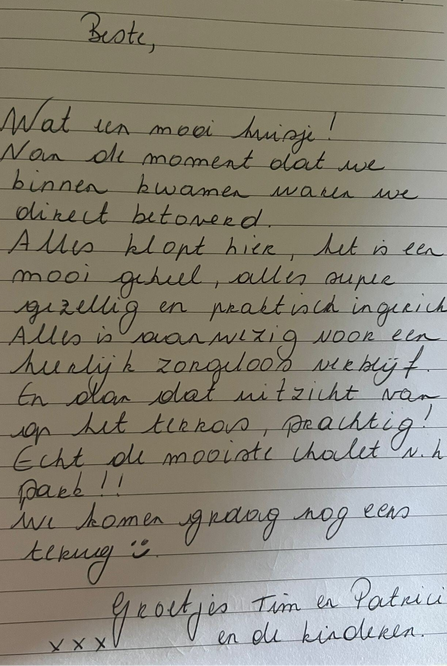 Beste,
Wat een mooi huisje!
Van de moment dat we
binnen kwamen waren we
direct betoverd.
Alles klopt hier, het is een
mooi geheel, alles super
gezellig en praktisch ingerich
Alles is aanwezig voor een
heerlijk zorgeloos verblijf.
En dan dat uitzicht van
op het terras, prachtig!
Echt de mooiste chalet v. h
park!!
We komen graag nog eens
terug ☺.
Groetjes Tim en Patrici
xxx en de kinderen.